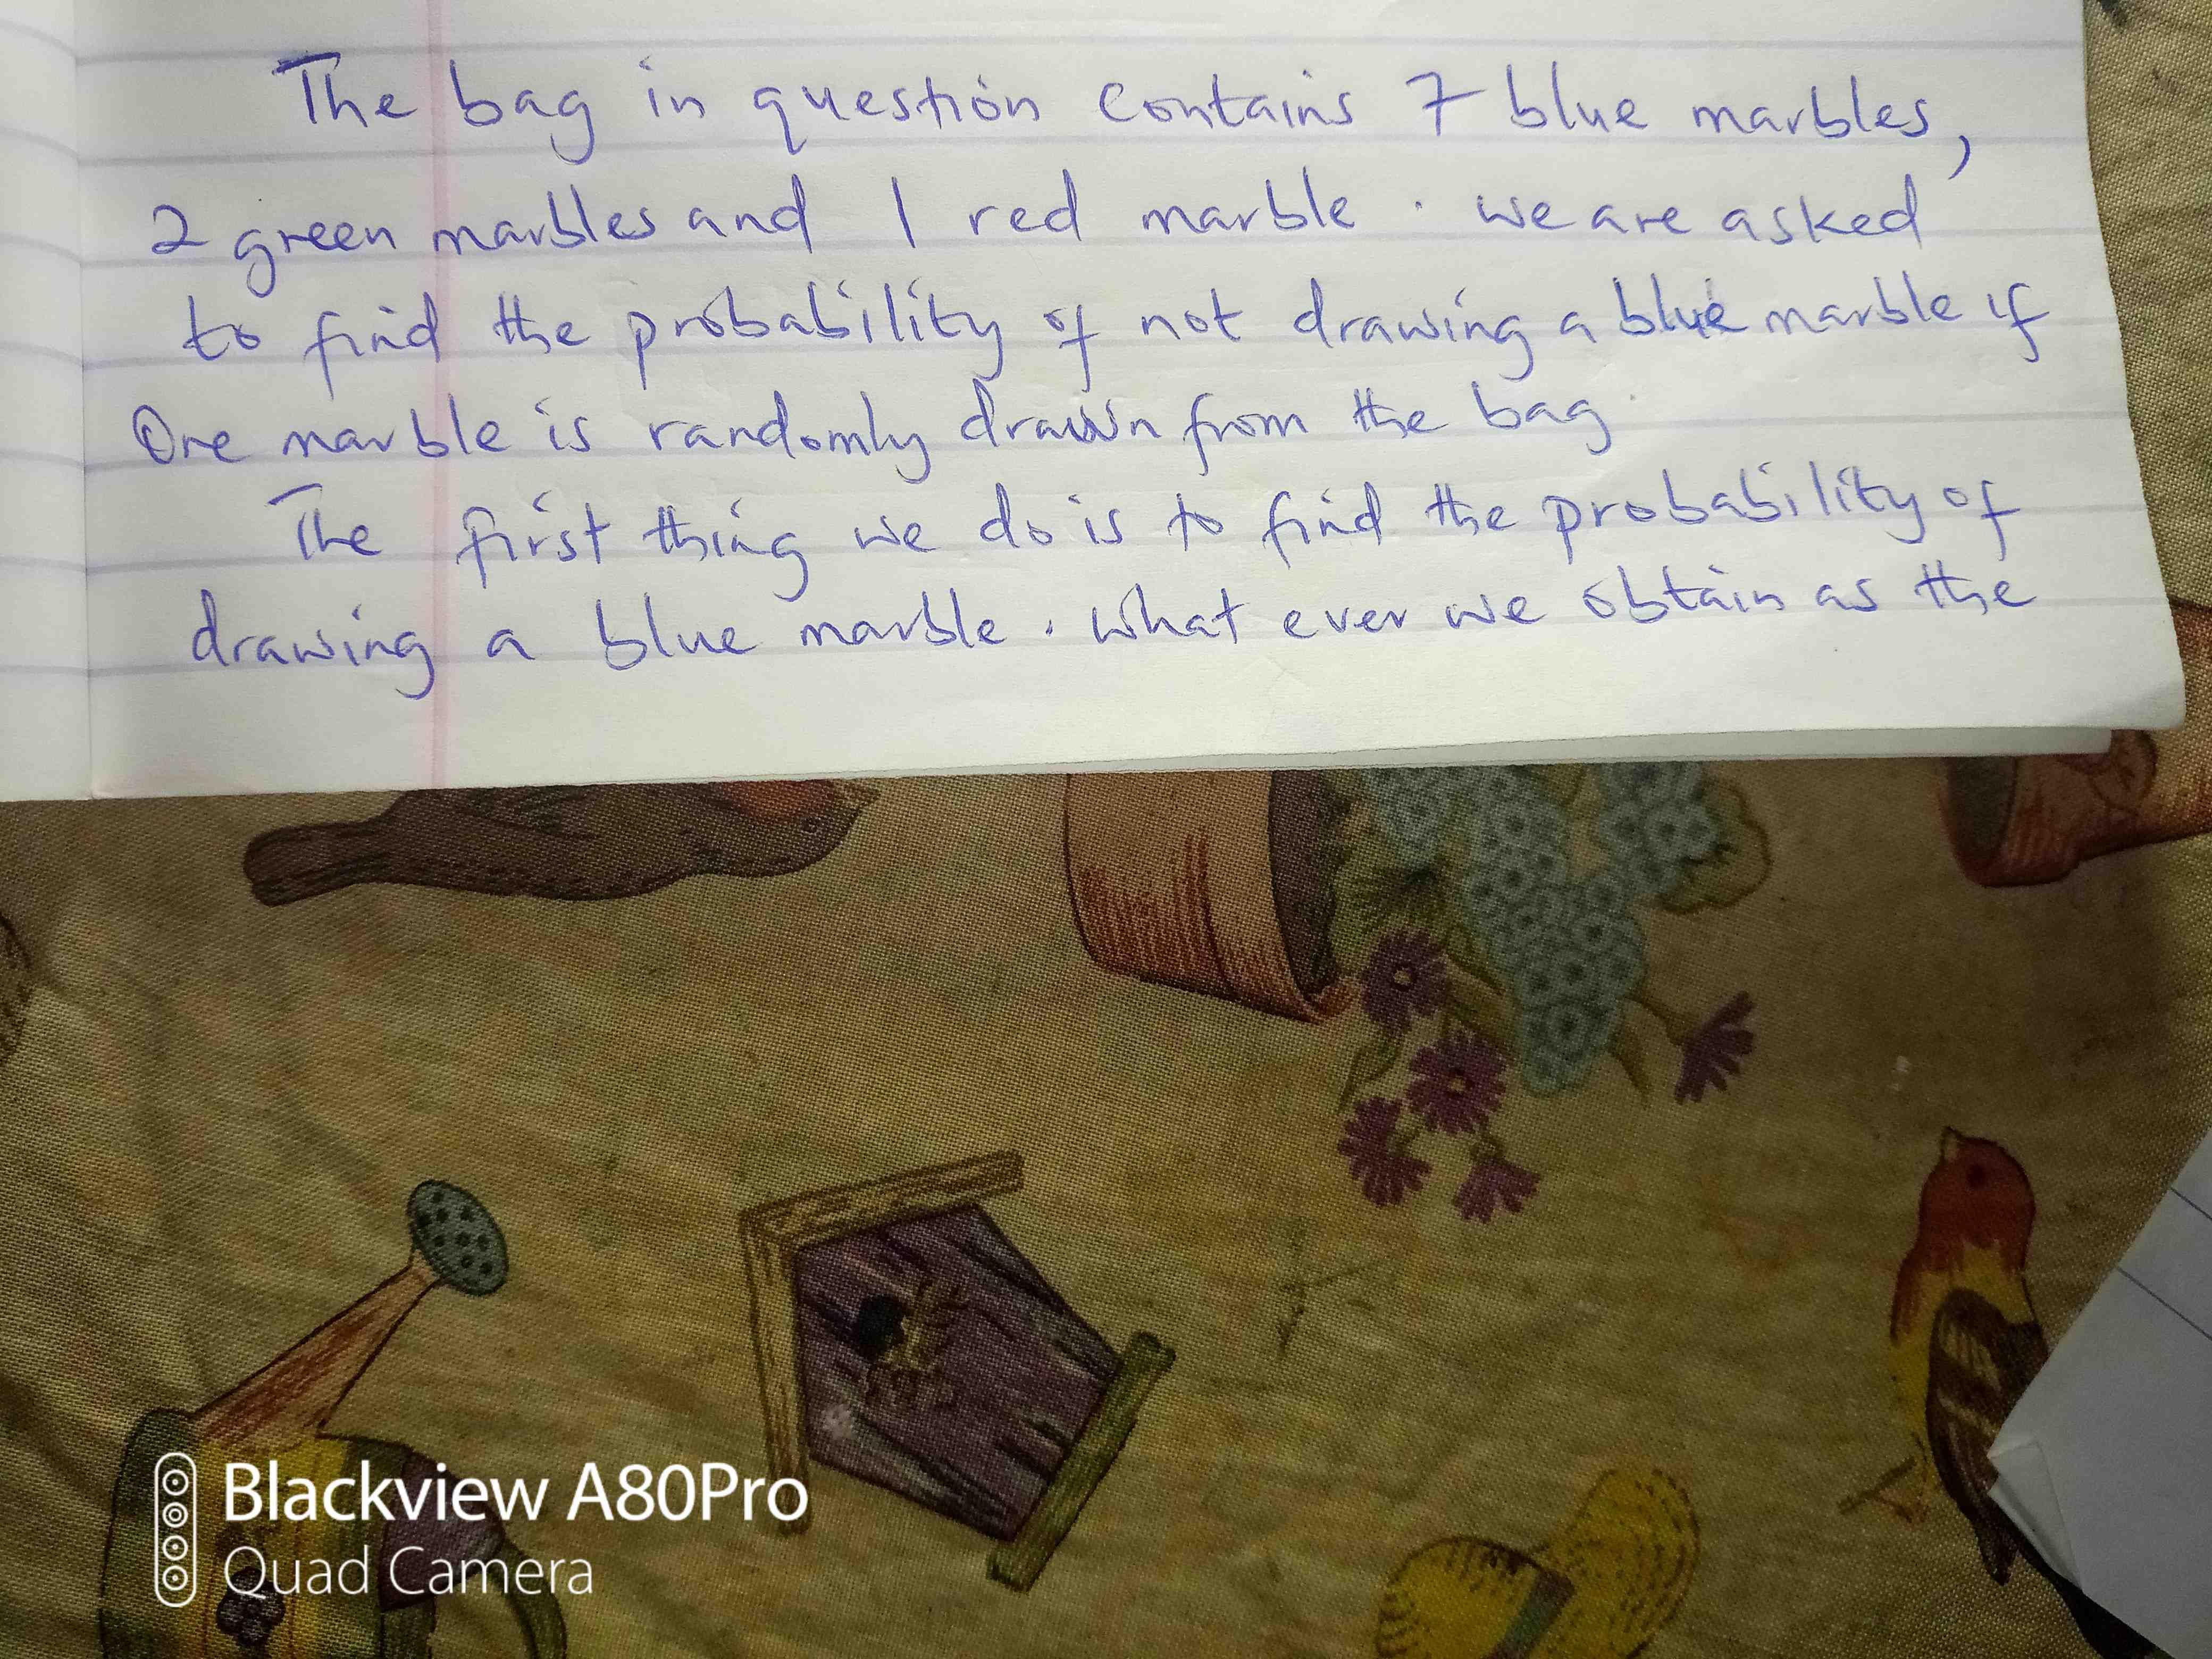 The bag in question contains 7 blue marbles,
2 green marbles and 1 red marble. we are asked
to find the probability of not drawing a blue marble if
One marble is randomly drawn from the bag.
The first thing we do is to find the probability of
drawing a blue marble. what ever we obtain as the
Blackview A80Pro
Quad Camera